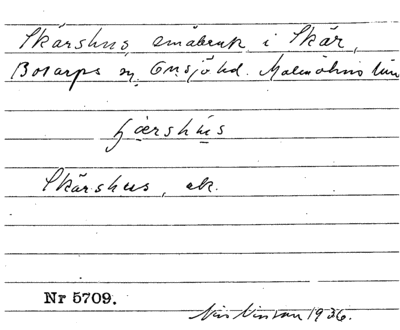 Skärshus småbruk i Skär,
Bosarps sn. Onsjö hd. Malmöhus län
ʃæ̀rshùs
Skärshus, ek.
Nr 5709.
1936.